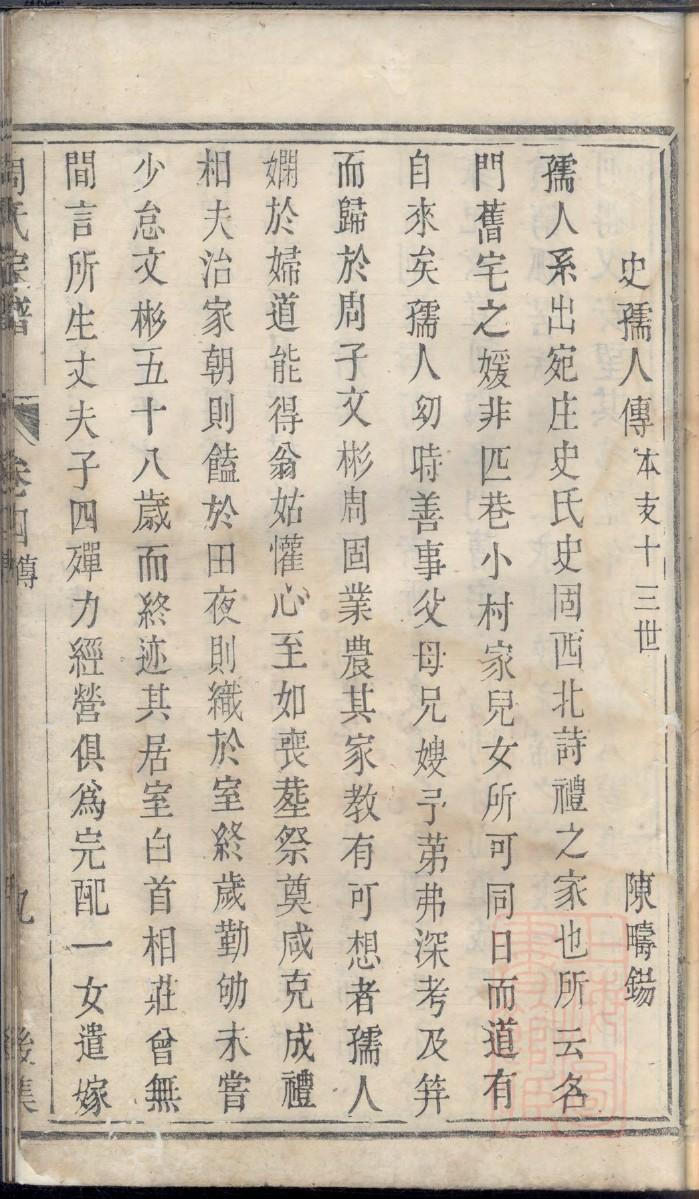 史孺人傳 本支十三世 陳疇錫
孺人系出宛庄史氏史固西北詩禮之家也所云名
門舊宅之媛非匹巷小村家兒女所可同日而道有
自來矣孺人幼時善事父母兄嫂予苐弗深考及笄
而歸於周子文彬周固業農其家教有可想者孺人
嫻於婦道能得翁姑懽心至如喪塟祭奠咸克成禮
相夫治家朝則饁於田夜則織於室終歲勤劬未嘗
少怠文彬五十八歲而終迹其居室白首相莊曾無
間言所生丈夫子四殫力經營俱爲完配一女遣嫁
周氏宗譜 卷四 傳 九